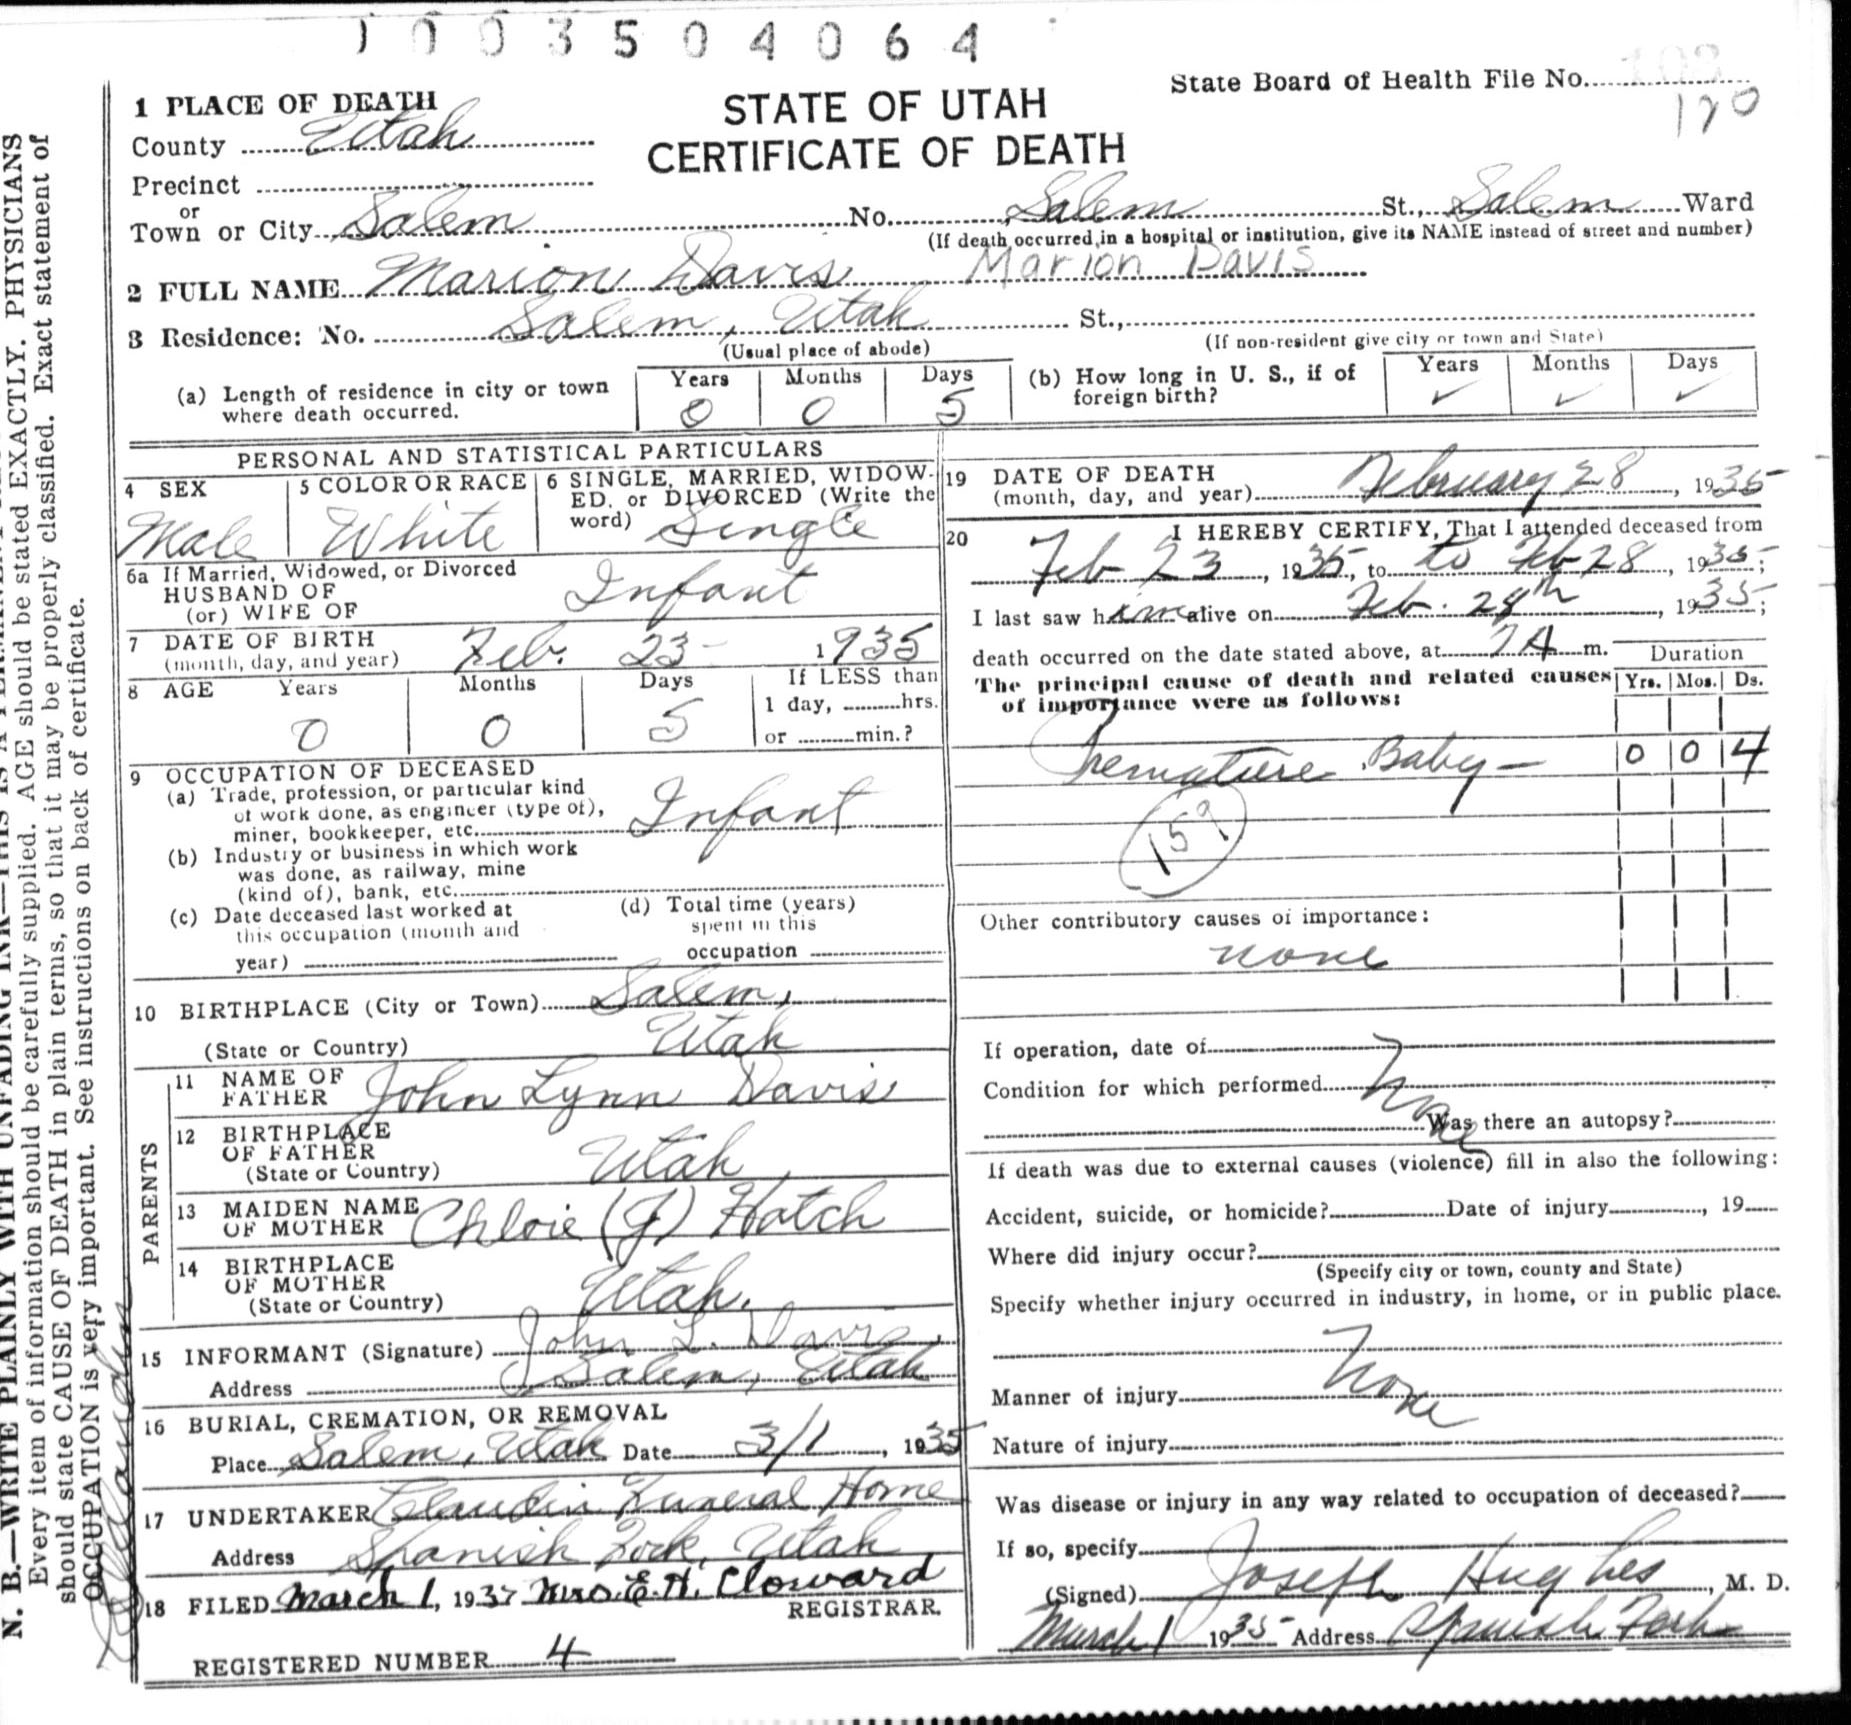 1003504064
State Board of Health File No.
170
STATE OF UTAH
CERTIFICATE OF DEATH
1 PLACE OF DEATH
County Utah
Precinct
or
Town or City Salem No. Salem St., Salem Ward
(If death occurred in a hospital or institution, give its NAME instead of street and number)
2 FULL NAME Marion Davis Marion Davis
3 Residence: No. Salem, Utah St.,
(Usual place of abode) (If non-resident give city or town and State)
(a) Length of residence in city or town where death occurred. Years 0 Months 0 Days 5
(b) How long in U. S., if of foreign birth? Years ✓ Months ✓ Days ✓
PERSONAL AND STATISTICAL PARTICULARS
4 SEX Male
5 COLOR OR RACE White
6 SINGLE, MARRIED, WIDOWED, or DIVORCED (Write the word) Single
6a If Married, Widowed, or Divorced
HUSBAND OF
(or) WIFE OF Infant
7 DATE OF BIRTH
(month, day, and year) Feb. 23 - 1935
8 AGE Years 0 Months 0 Days 5 If LESS than
1 day, hrs.
or min.?
9 OCCUPATION OF DECEASED
(a) Trade, profession, or particular kind
of work done, as engineer (type of),
miner, bookkeeper, etc. Infant
(b) Industry or business in which work
was done, as railway, mine
(kind of), bank, etc.
(c) Date deceased last worked at
this occupation (month and
year)
(d) Total time (years)
spent in this
occupation
10 BIRTHPLACE (City or Town) Salem,
(State or Country) Utah
PARENTS
11 NAME OF
FATHER John Lynn Davis
12 BIRTHPLACE
OF FATHER
(State or Country) Utah
13 MAIDEN NAME
OF MOTHER Chloie (J) Hatch
14 BIRTHPLACE
OF MOTHER
(State or Country) Utah.
15 INFORMANT (Signature) John L. Davis,
Address Salem, Utah
16 BURIAL, CREMATION, OR REMOVAL
Place Salem, Utah Date 3/1, 1935
17 UNDERTAKER Claudin Funeral Home
Address Spanish Fork, Utah
18 FILED March 1, 1935 Mrs. E. H. Cloward
REGISTRAR.
REGISTERED NUMBER 4
19 DATE OF DEATH
(month, day, and year) February 28, 1935
20 I HEREBY CERTIFY, That I attended deceased from
Feb 23, 1935, to to Feb 28, 1935;
I last saw him alive on Feb. 28th, 1935;
death occurred on the date stated above, at 7 A m.
The principal cause of death and related causes
of importance were as follows:
Duration
Yrs. Mos. Ds.
Premature Baby - 0 0 4
159
Other contributory causes of importance:
none
If operation, date of
Condition for which performed None
Was there an autopsy?
If death was due to external causes (violence) fill in also the following:
Accident, suicide, or homicide? Date of injury , 19
Where did injury occur?
(Specify city or town, county and State)
Specify whether injury occurred in industry, in home, or in public place.
Manner of injury None
Nature of injury
Was disease or injury in any way related to occupation of deceased?
If so, specify
(Signed) Joseph Hughes, M. D.
March 1 1935 Address Spanish Fork
N. B.—WRITE PLAINLY WITH UNFADING INK—THIS IS A PERMANENT
Every item of information should be carefully supplied. AGE should be stated EXACTLY. PHYSICIANS
should state CAUSE OF DEATH in plain terms, so that it may be properly classified. Exact statement of
OCCUPATION is very important. See instructions on back of certificate.